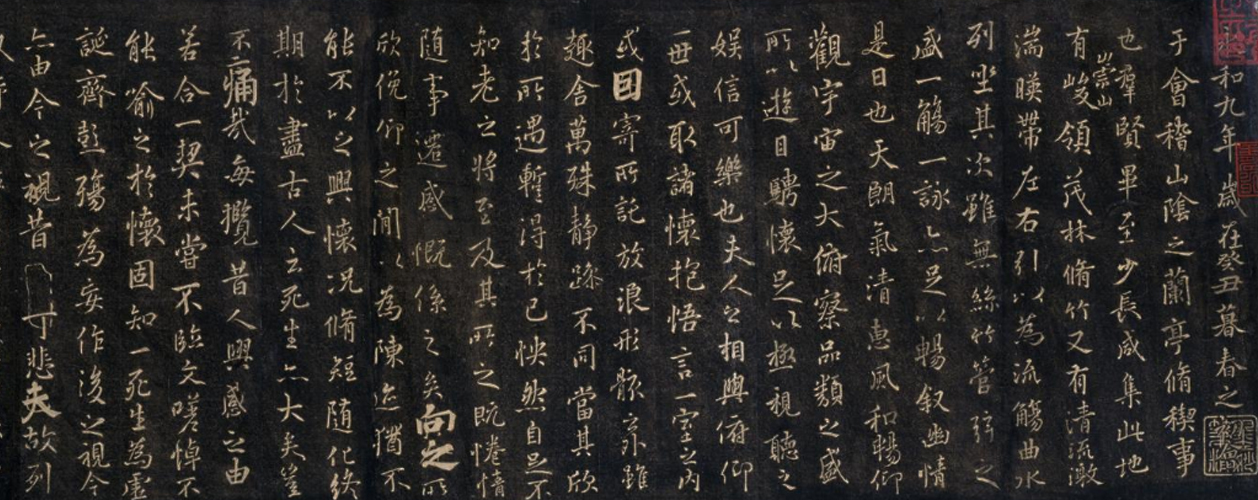 和九年歲在癸丑暮春之
于會稽山陰之蘭亭脩稧事
也羣賢畢至少長咸集此地
有崇山峻領茂林脩竹又有清流激
湍暎帶左右引以為流觴曲水
列坐其次雖無絲竹管弦之
盛一觴一詠亦足以暢叙幽情
是日也天朗氣清惠風和暢仰
觀宇宙之大俯察品類之盛
所以遊目騁懷足以極視聽之
娛信可樂也夫人之相與俯仰
一世或取諸懷抱悟言一室之內
或因寄所託放浪形骸之外雖
趣舍萬殊靜躁不同當其欣
於所遇蹔得於己怏然自足不
知老之將至及其所之既惓情
隨事遷感慨係之矣向之所
欣俛仰之閒以為陳迹猶不
能不以之興懷況脩短隨化終
期於盡古人云死生亦大矣豈
不痛哉每攬昔人興感之由
若合一契未嘗不臨文嗟悼不
能喻之於懷固知一死生為虛
誕齊彭殤為妄作後之視今
亦由今之視昔悲夫故列